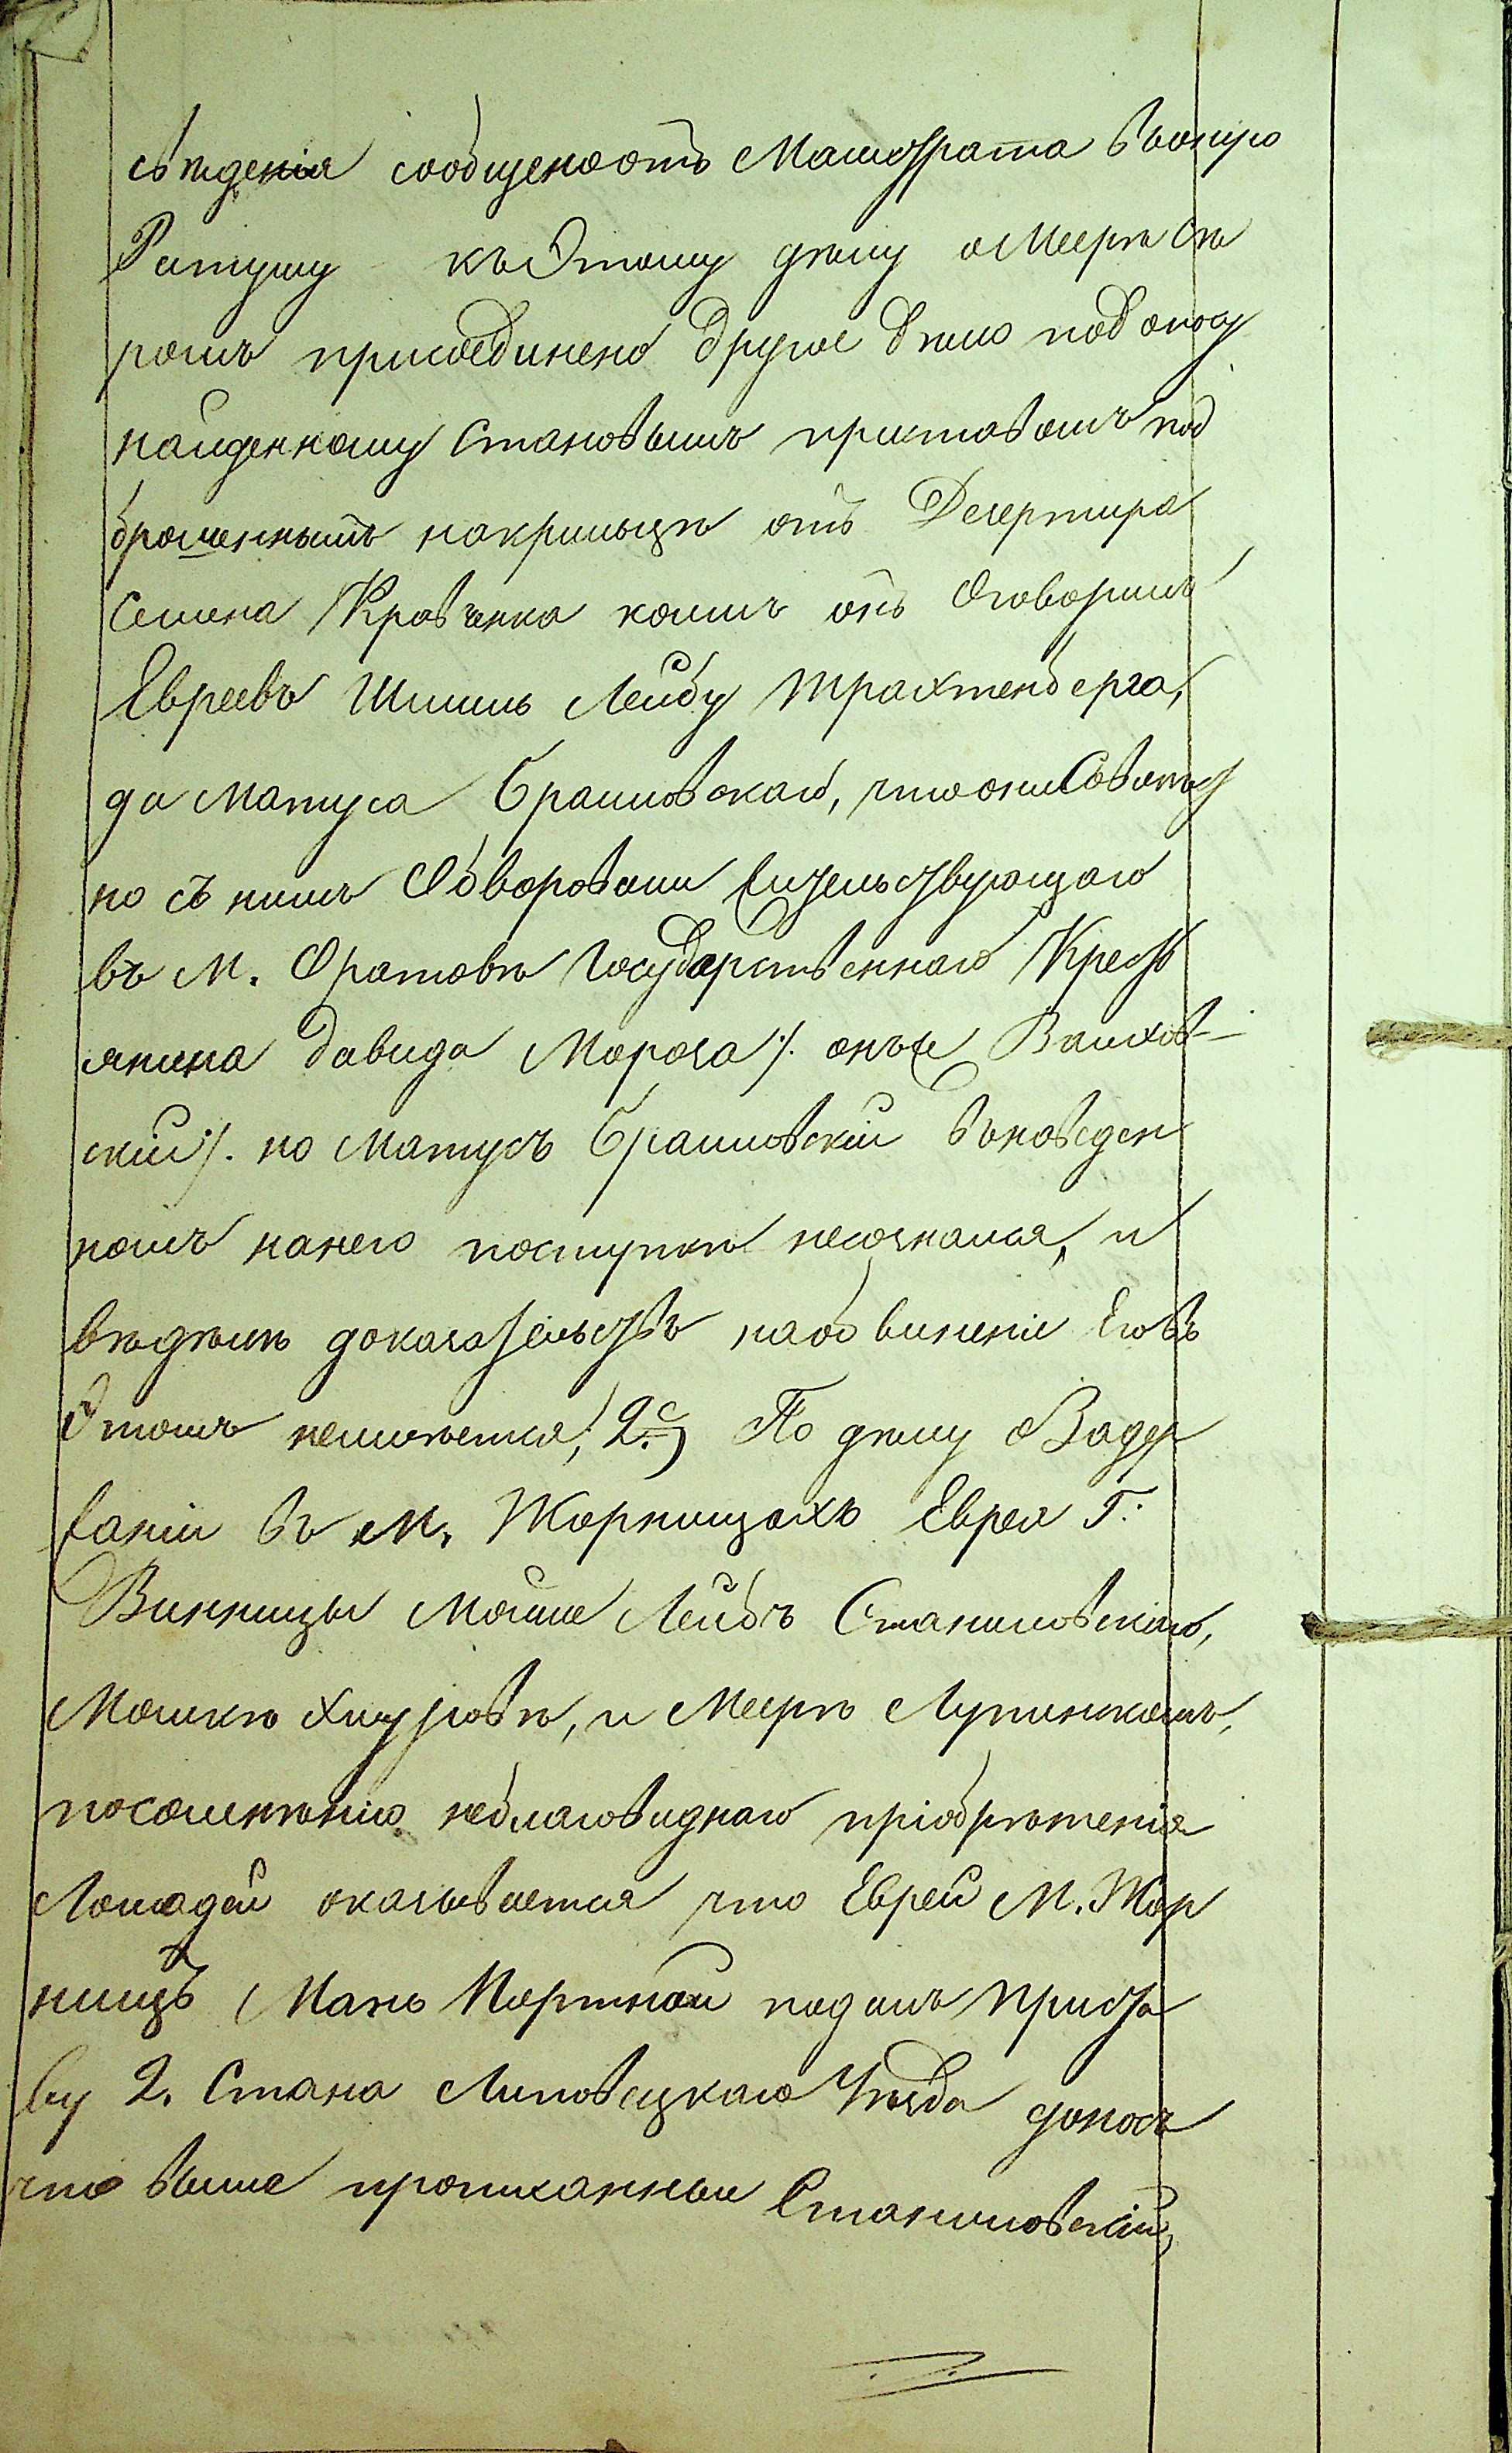 свѣденія сообщено отъ Магистрата въ оную
Ратушу къ Этому дѣлу о Меерѣ Ск
ромъ присоединено другое дѣло по доносу
найденному Становымъ приставомъ под
брошеннымъ на крыльцѣ отъ Дезертира
Семена Кравченка коимъ онъ Оговорилъ
Евреевъ Шмиль Лейбу Трахтенберга,
да Матуса Браиловскаго, что они Совѣст
но съ нимъ Обворовали жительствующаго
въ М. Оратовѣ Государственнаго Крест
янина Давида Мороза /. онъ же Ваихов-
скій /. но Матусъ Браиловскій въ наведен
номъ на него поступкѣ не сознался, и
въ дѣлѣ доказательствъ на обвиненіе Его въ
Этомъ не имѣется, 2е) По дѣлу о Задер
жаніи въ М. Жорнищахъ Еврея Г.
Винницы Мошке Лейбѣ Станиловскаго,
Мошкѣ, и Меерѣ Лупинскомъ,
по сомнѣнію неблаговиднаго пріобрѣтенія
Лошадей оказывается что Еврей М. Жор
нищъ Мань Портной подалъ Приста
ву 2. Стана Липовецкаго Уѣзда доносъ
что выше прописанные Станиловскій,